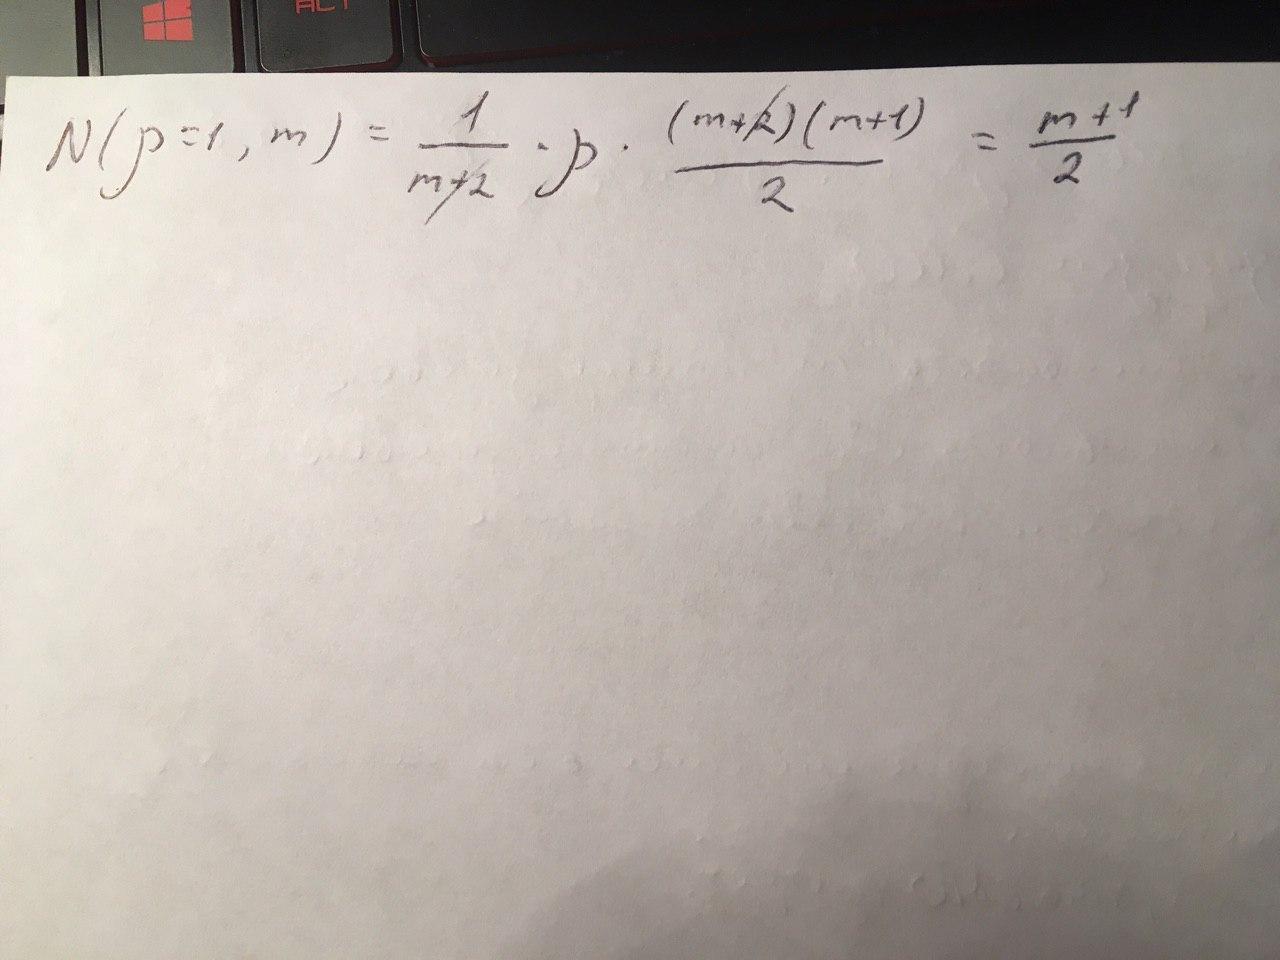 ALT
N(p=1, m) = 1/(m+2) · p · (m+2)(m+1)/2 = (m+1)/2